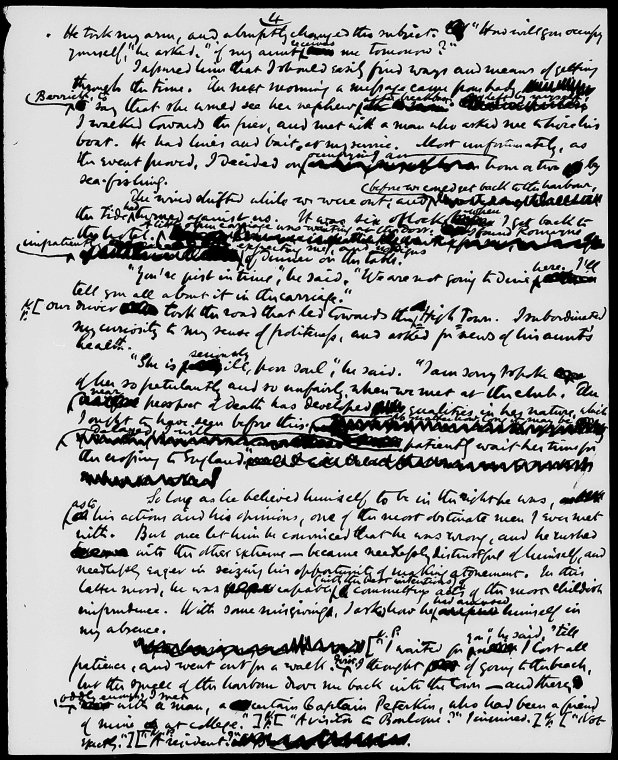 4
He took my arm, and abruptly changed the subject. "How will you occupy
yourself," he asked, "if my aunt receives me tomorrow?"
I assured him that I should easily find ways and means of getting
through the time. The next morning a message came from
to say that she would see her nephew
I walked towards the pier, and met with a man who asked me to hire his
boat. He had lines and bait, at my service. Most unfortunately, as
the event proved, I decided on occupying an hour or two by
sea-fishing.
The wind shifted while we were out, and before we could get back to the harbour,
the tide had turned against us. It was six o'clock when I got back to
the hotel. A carriage was waiting at the door. I found Romayne
impatiently expecting me, and no signs
of dinner on the table.
"You're just in time," he said. "We are not going to dine here. I'll
tell you all about it in the carriage."
Our driver took the road that led towards the High Town. I subordinated
my curiosity to my sense of politeness, and asked for news of his aunt's
health.
"She is seriously ill, poor soul," he said. "I am sorry I spoke
of her so petulantly and so unfairly, when we met at the club. The
near prospect of death has developed qualities in her nature, which
I ought to have seen before this.
patiently wait her time for
the crossing to England."
So long as he believed himself to be in the right he was,
as to his actions and his opinions, one of the most obstinate men I ever met
with. But once let him be convinced that he was wrong, and he rushed
into the other extreme — became needlessly distrustful of himself, and
needlessly eager in seizing his opportunity of making atonement. In this
latter mood, he was capable (with the best intentions) of committing acts of the most childish
imprudence. With some misgivings, I asked how he had amused himself in
my absence.
"I waited for you," he said, "till I lost all
patience, and went out for a walk. First, I thought of going to the beach,
but the smell of the harbour drove me back into the town — and there,
oddly enough, I met with a man, a certain Captain Peterkin, who had been a friend
of mine at college." ["A visitor to Boulogne?" I inquired.] ["Not
exactly."] ["A resident?"